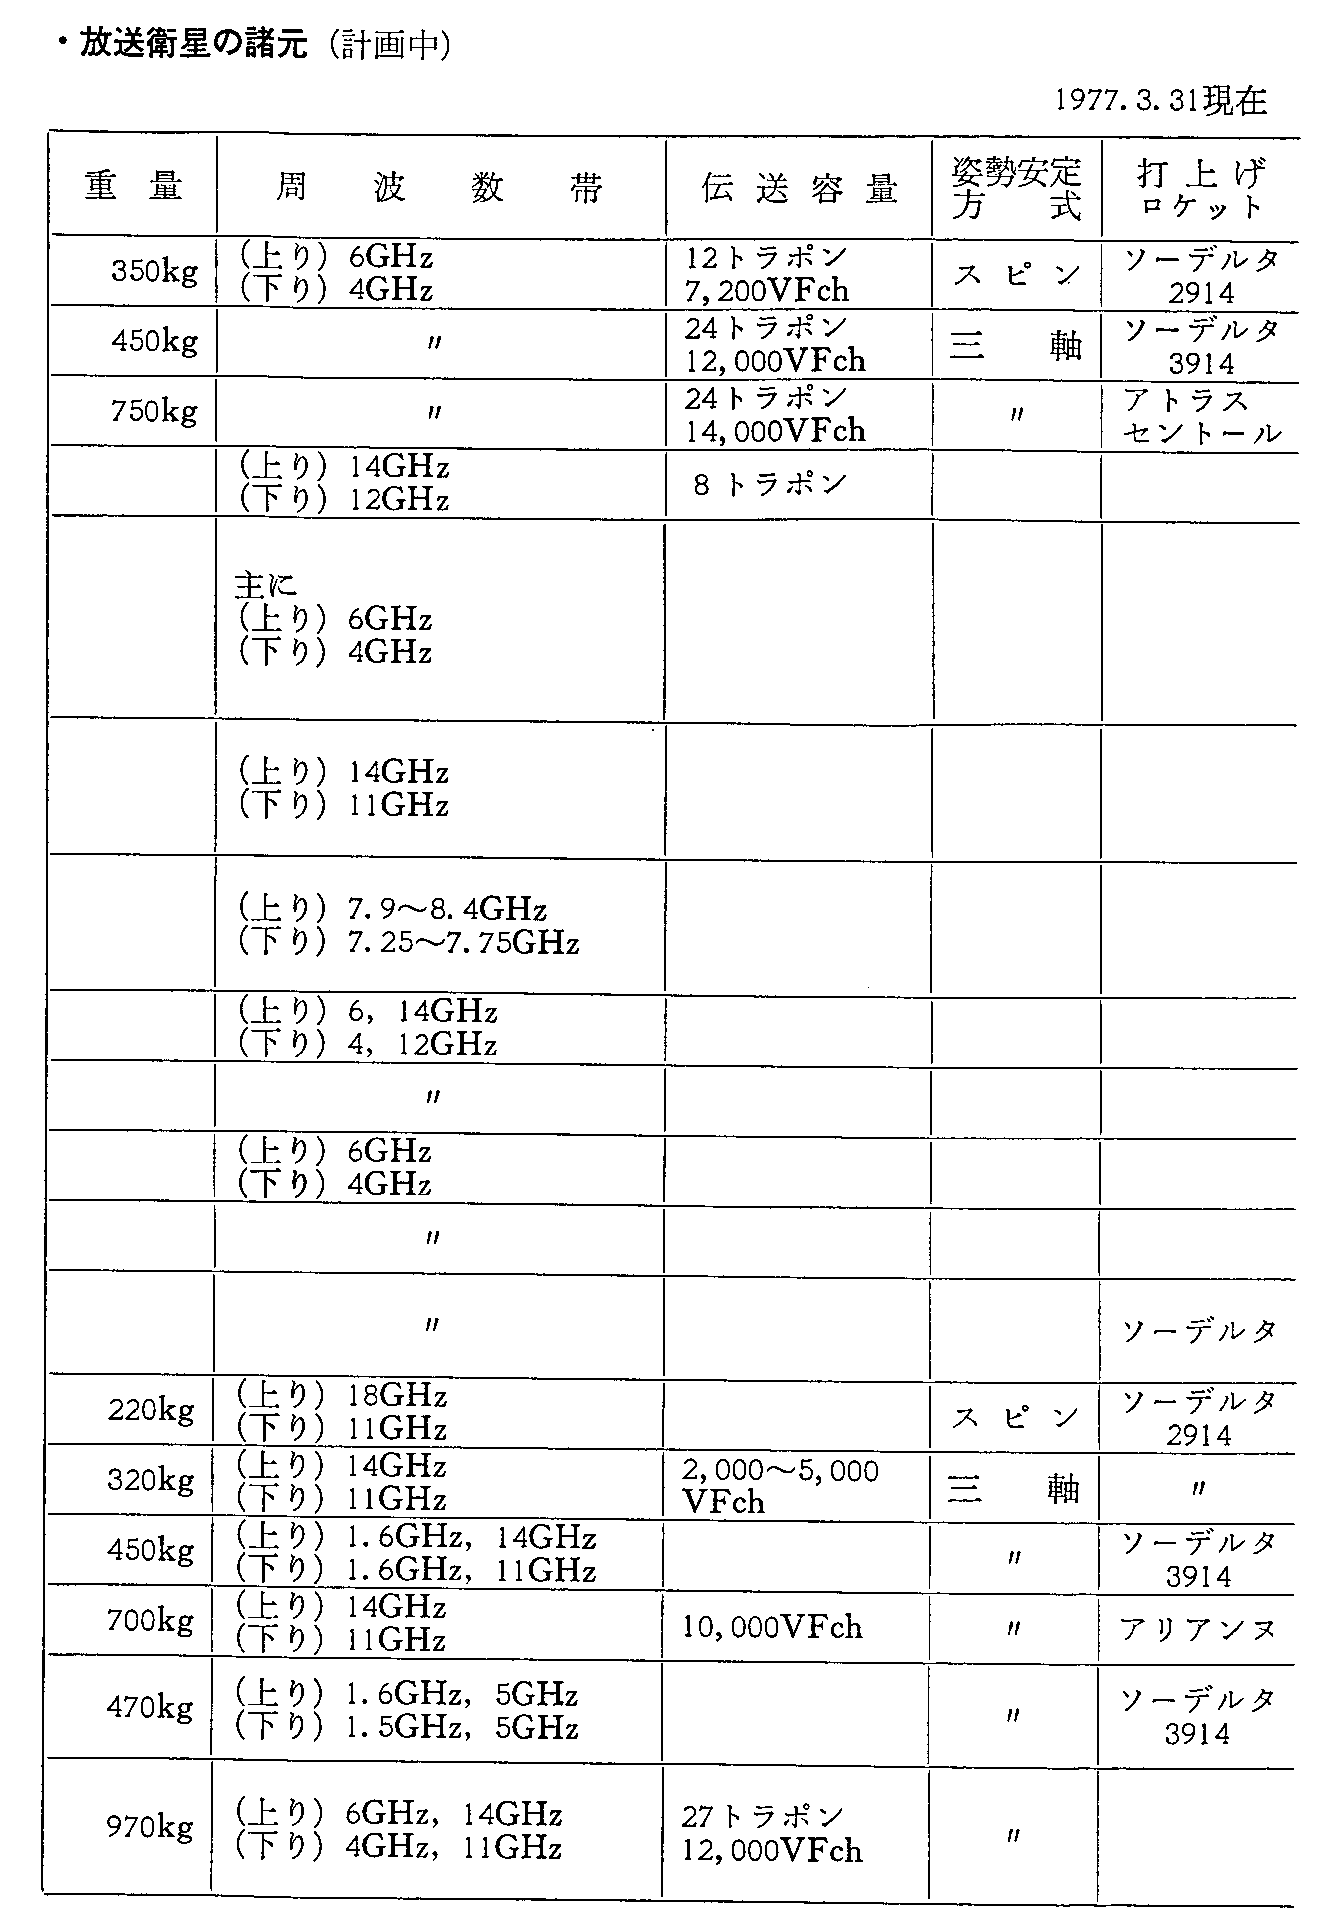 ・放送衛星の諸元（計画中）
1977.3.31現在
重量 周波数帯 伝送容量 姿勢安定方式 打上げロケット
350kg （上り）6GHz （下り）4GHz 12トラポン 7,200VFch スピン ソーデルタ 2914
450kg 〃 24トラポン 12,000VFch 三軸 ソーデルタ 3914
750kg 〃 24トラポン 14,000VFch 〃 アトラスセントール
（上り）14GHz （下り）12GHz 8トラポン
主に （上り）6GHz （下り）4GHz
（上り）14GHz （下り）11GHz
（上り）7.9〜8.4GHz （下り）7.25〜7.75GHz
（上り）6, 14GHz （下り）4, 12GHz
〃
（上り）6GHz （下り）4GHz
〃
〃 ソーデルタ
220kg （上り）18GHz （下り）11GHz スピン ソーデルタ 2914
320kg （上り）14GHz （下り）11GHz 2,000〜5,000 VFch 三軸 〃
450kg （上り）1.6GHz, 14GHz （下り）1.6GHz, 11GHz 〃 ソーデルタ 3914
700kg （上り）14GHz （下り）11GHz 10,000VFch 〃 アリアンヌ
470kg （上り）1.6GHz, 5GHz （下り）1.5GHz, 5GHz 〃 ソーデルタ 3914
970kg （上り）6GHz, 14GHz （下り）4GHz, 11GHz 27トラポン 12,000VFch 〃